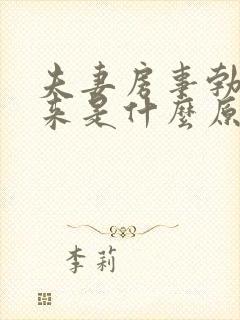 夫妻房事勃
来是什麼原
李莉